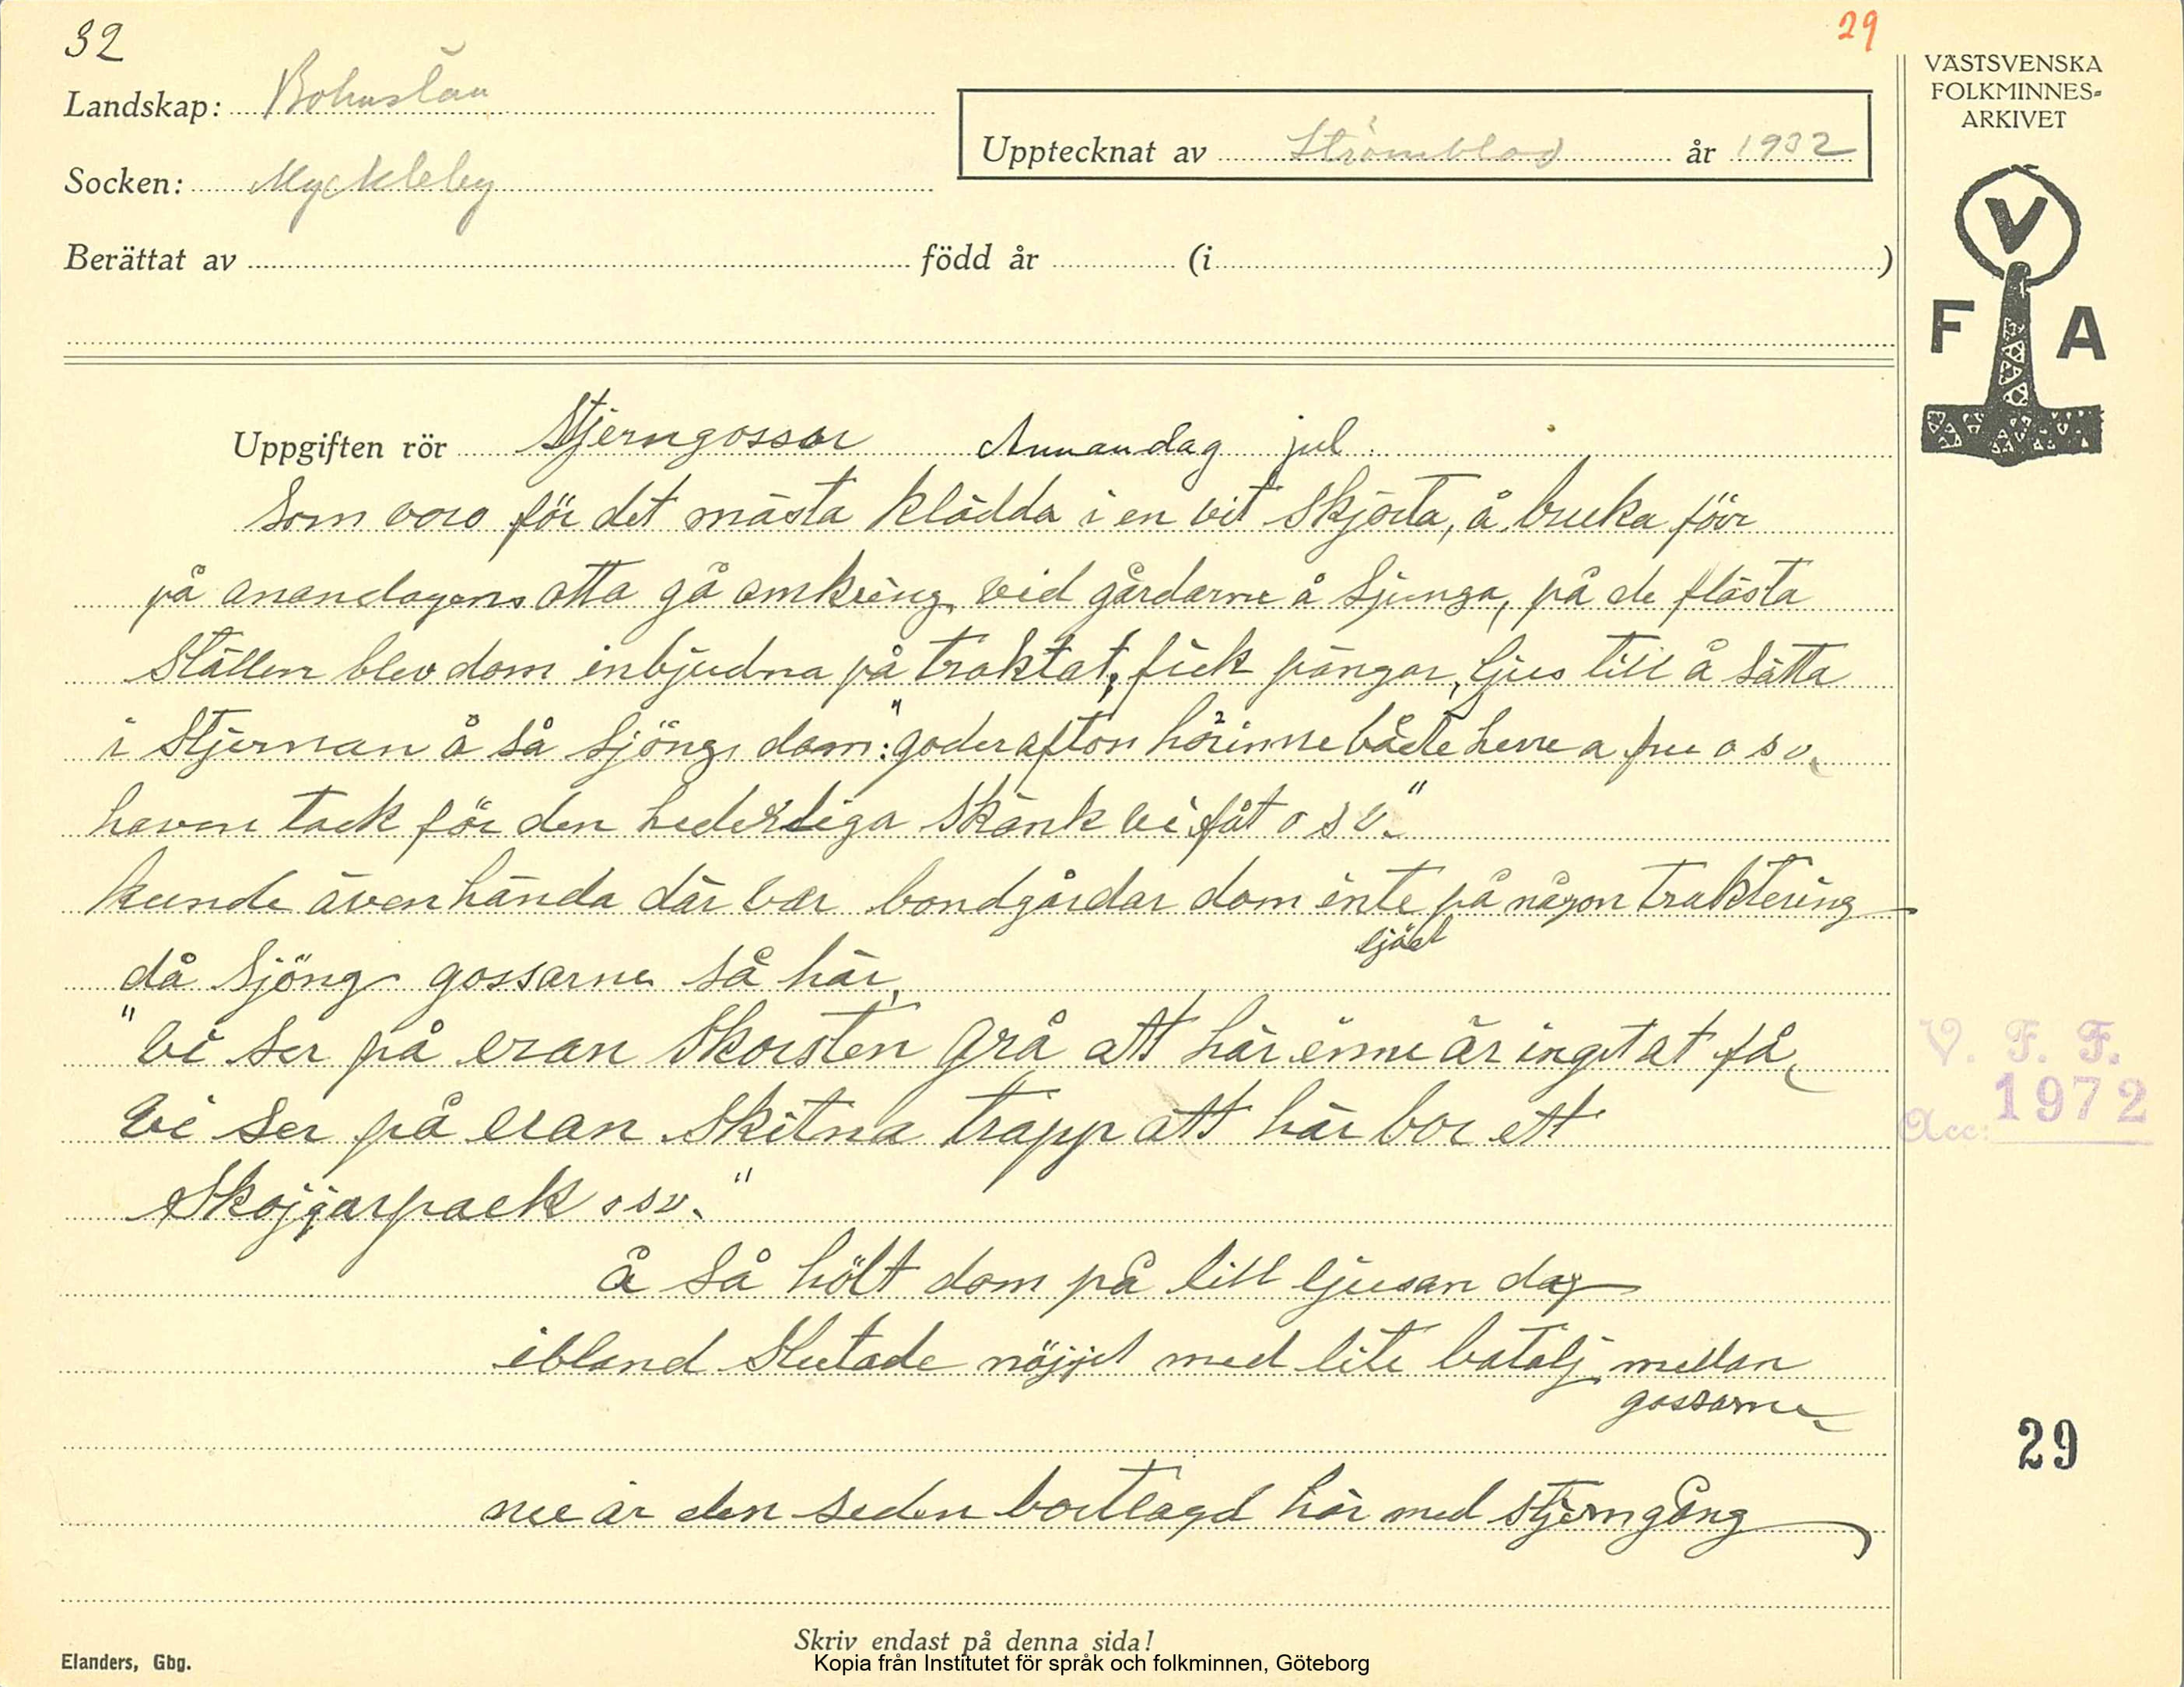 32
29
Landskap: Bohuslän
Upptecknat av Strömblad år 1932
Socken: Myckleby
Berättat av född år (i )
VÄSTSVENSKA
FOLKMINNES-
ARKIVET
V
F A
Uppgiften rör Stjerngossar Annandag jul
Som voro för det mästa klädda i en vit Skjorta, å bruka förr
på anandagens otta gå omkring vid gårdarne å Sjunga, på de flästa
Ställen blev dom inbjudna på traktat, fick pängar, ljus till å Sätta
i Stjernan å Så Sjöng dom: "goder afton härinne både herre a fru o s v.
haven tack för den hederliga Skänk vi fåt o s v."
kunde även hända där var bondgårdar dom inte på någon traktering
då Sjöng gossarne Så här,
"Vi Ser på eran Skorsten Grå att här inne är inget at få,
Vi Ser på eran Skitna trapp att här bor ett
Skojjarpack o s v."
Å Så hölt dom på till ljusan dag
ibland Slutade nöjjet med lite batalj mellan
gossarne
nu är den seden bortlagd här med Stjerngång
V. F. F.
Acc: 1972
29
Skriv endast på denna sida!
Elanders, Gbg.
Kopia från Institutet för språk och folkminnen, Göteborg